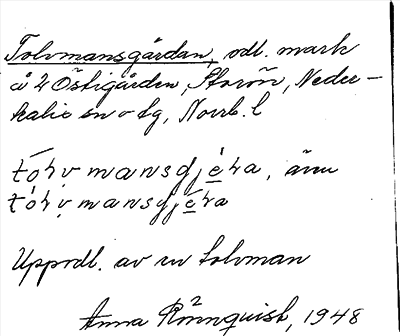 Tolvmansgärdan, odl. mark
å 4 Östigården, Storön, Neder-
kalix sn o lg, Norrb. l
tó̄ḷvmansgjè̱ra, äm
tóḷvmansgjé̱ra
Uppodl. av en tolvman
Anna Rönnquist, 1948